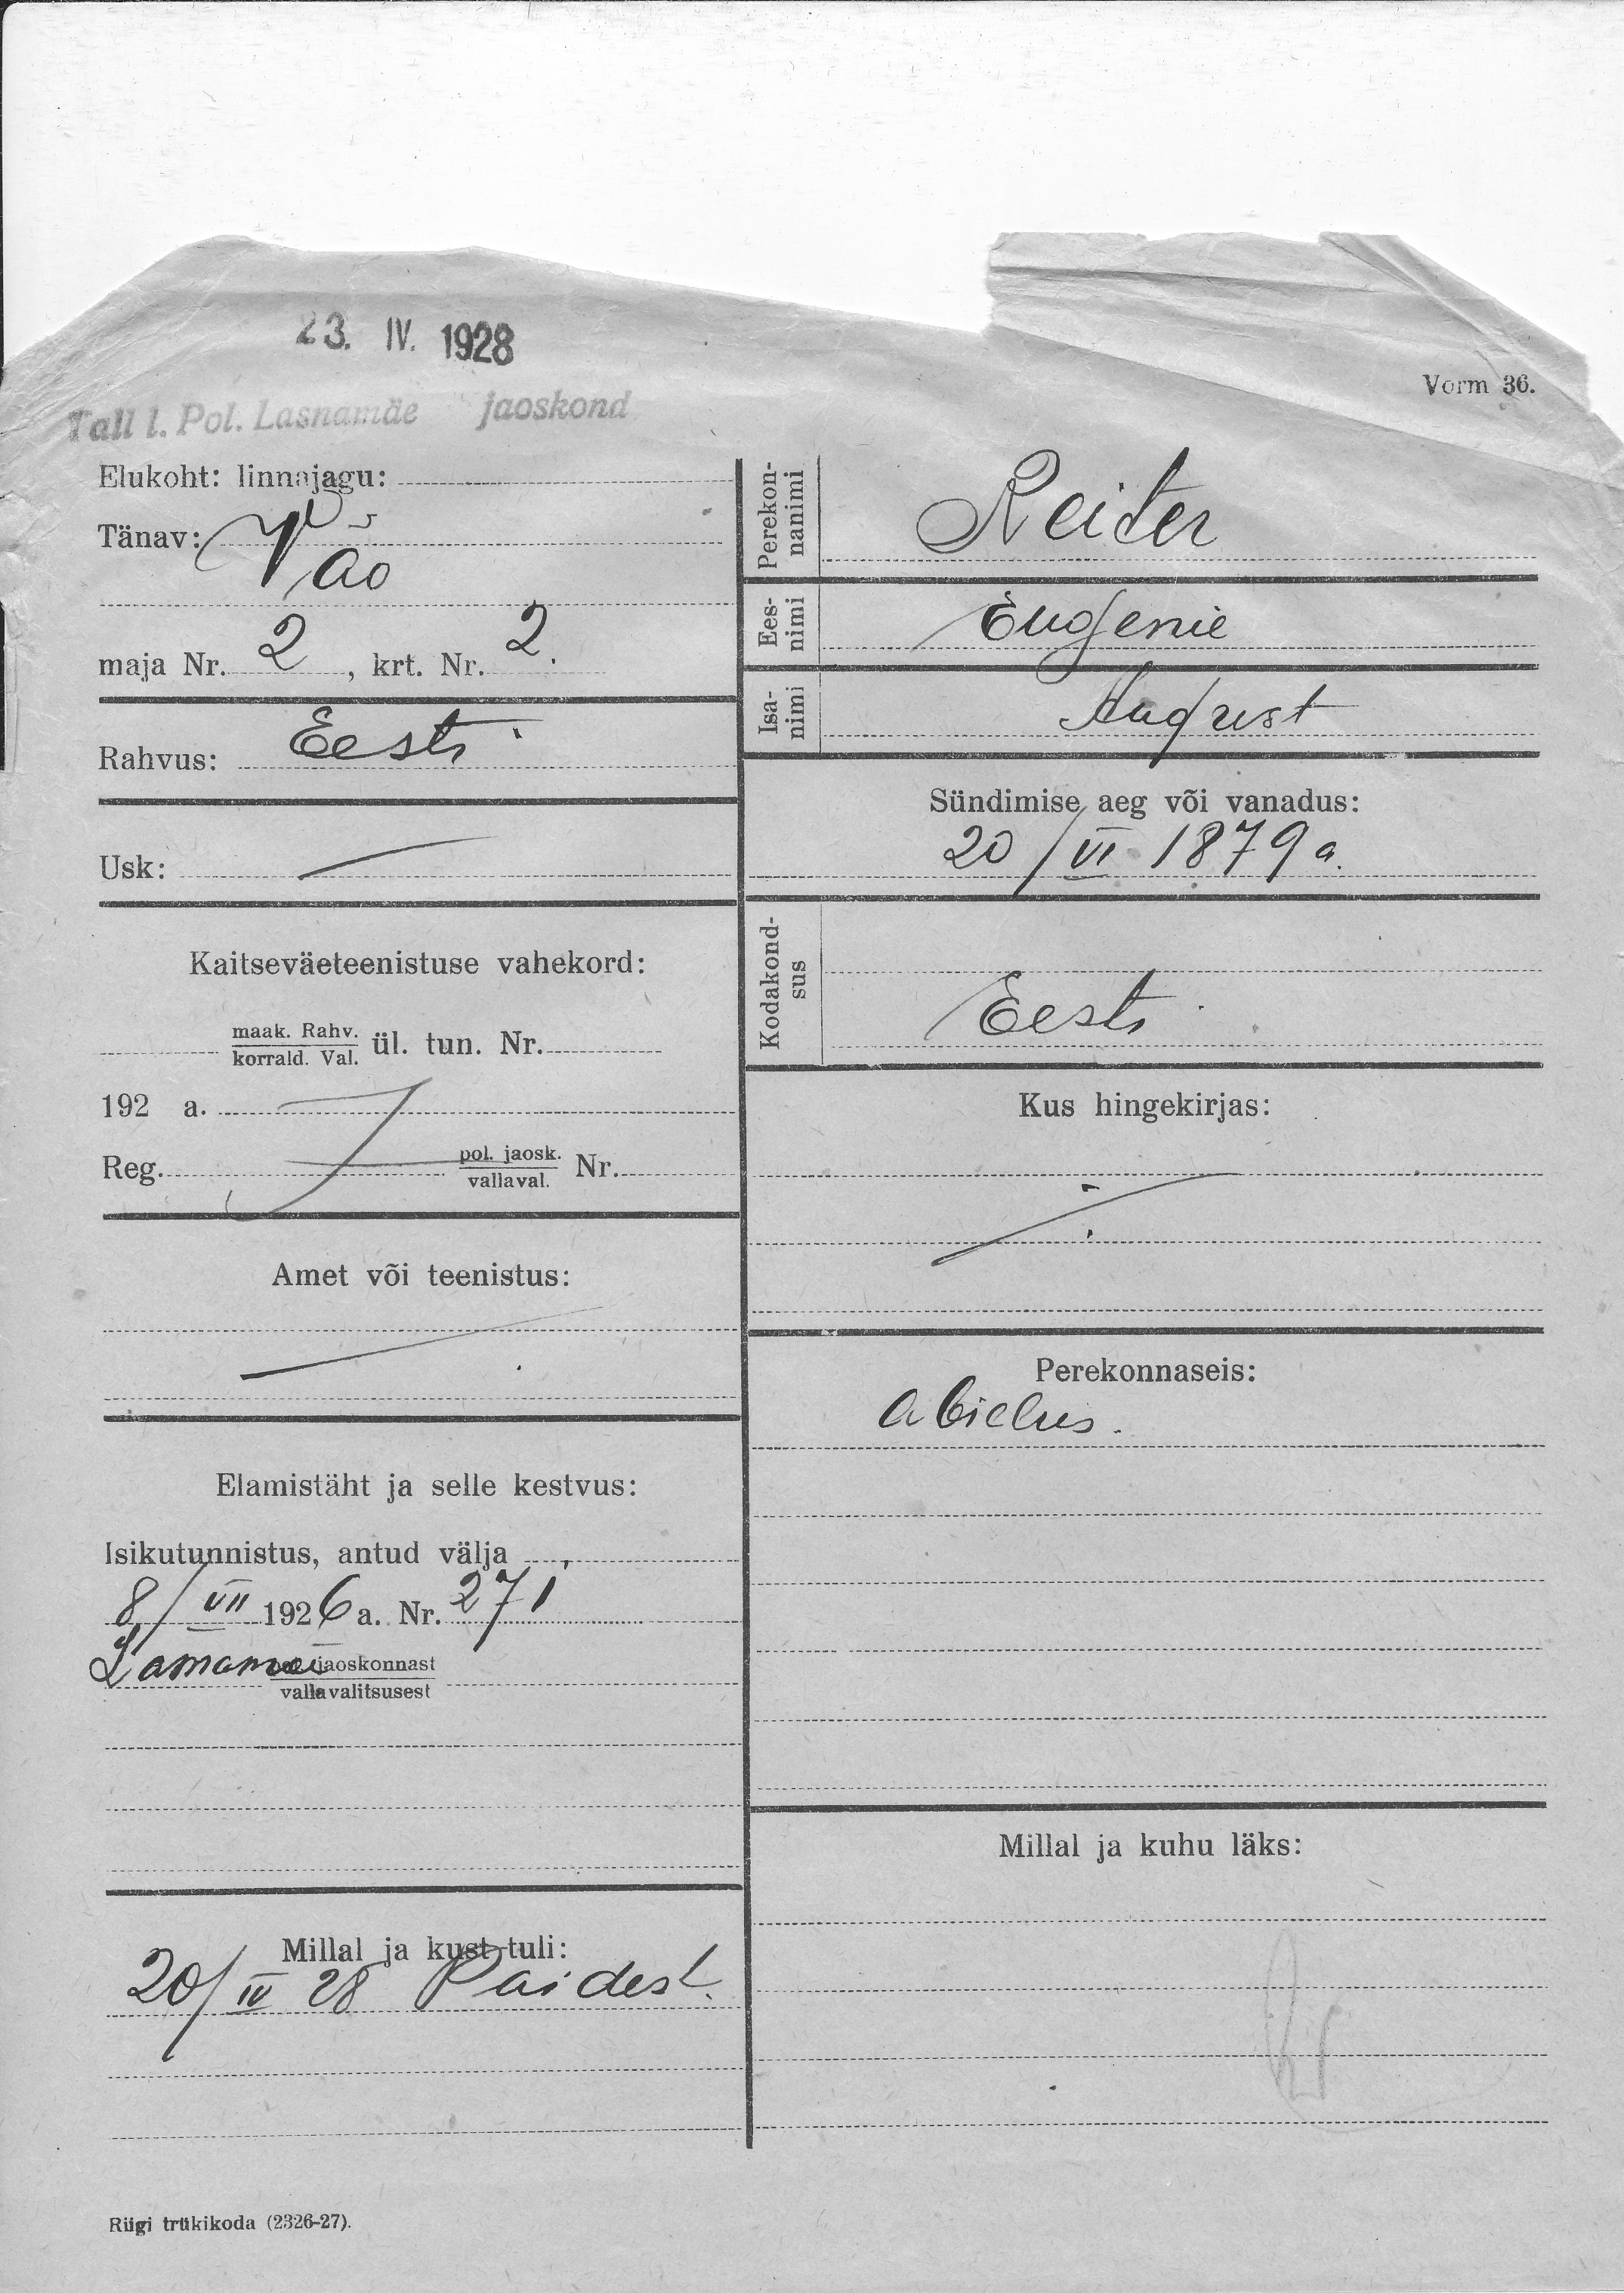 23. IV. 1928
Tall l. Pol. Lasnamäe jaoskond
Vorm 36.
Elukoht: linnajagu:
Tänav: Väo
maja Nr. 2, krt. Nr. 2.
Rahvus: Eesti
Usk: —
Kaitseväeteenistuse vahekord:
maak. Rahv.
korrald. Val. ül. tun. Nr.
192 a.
Reg. pol. jaosk. Nr.
vallaval.
Amet või teenistus:
—
Elamistäht ja selle kestvus:
Isikutunnistus, antud välja
8/VII 1926 a. Nr. 271
pol. jaoskonnast
vallavalitsusest
Millal ja kust tuli:
20/IV 28 Paidest.
Perekon-
nanimi
Reiter
Ees-
nimi
Eugenie
Isa-
nimi
August
Sündimise aeg või vanadus:
20/VI 1879 a.
Kodakond-
sus
Eesti
Kus hingekirjas:
Perekonnaseis:
abielus.
Millal ja kuhu läks:
Riigi trükikoda (2326-27).